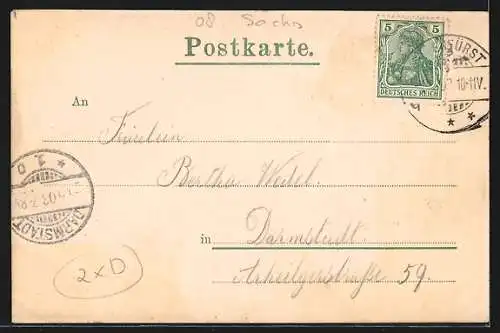 08 Sachs
Postkarte.
5 5
DEUTSCHES REICH
FÜRST
10-11V.
An
Fräulein
Bertha Wedel.
in Darmstadt.
Arheilgerstraße 59.
DARMSTADT
2xD